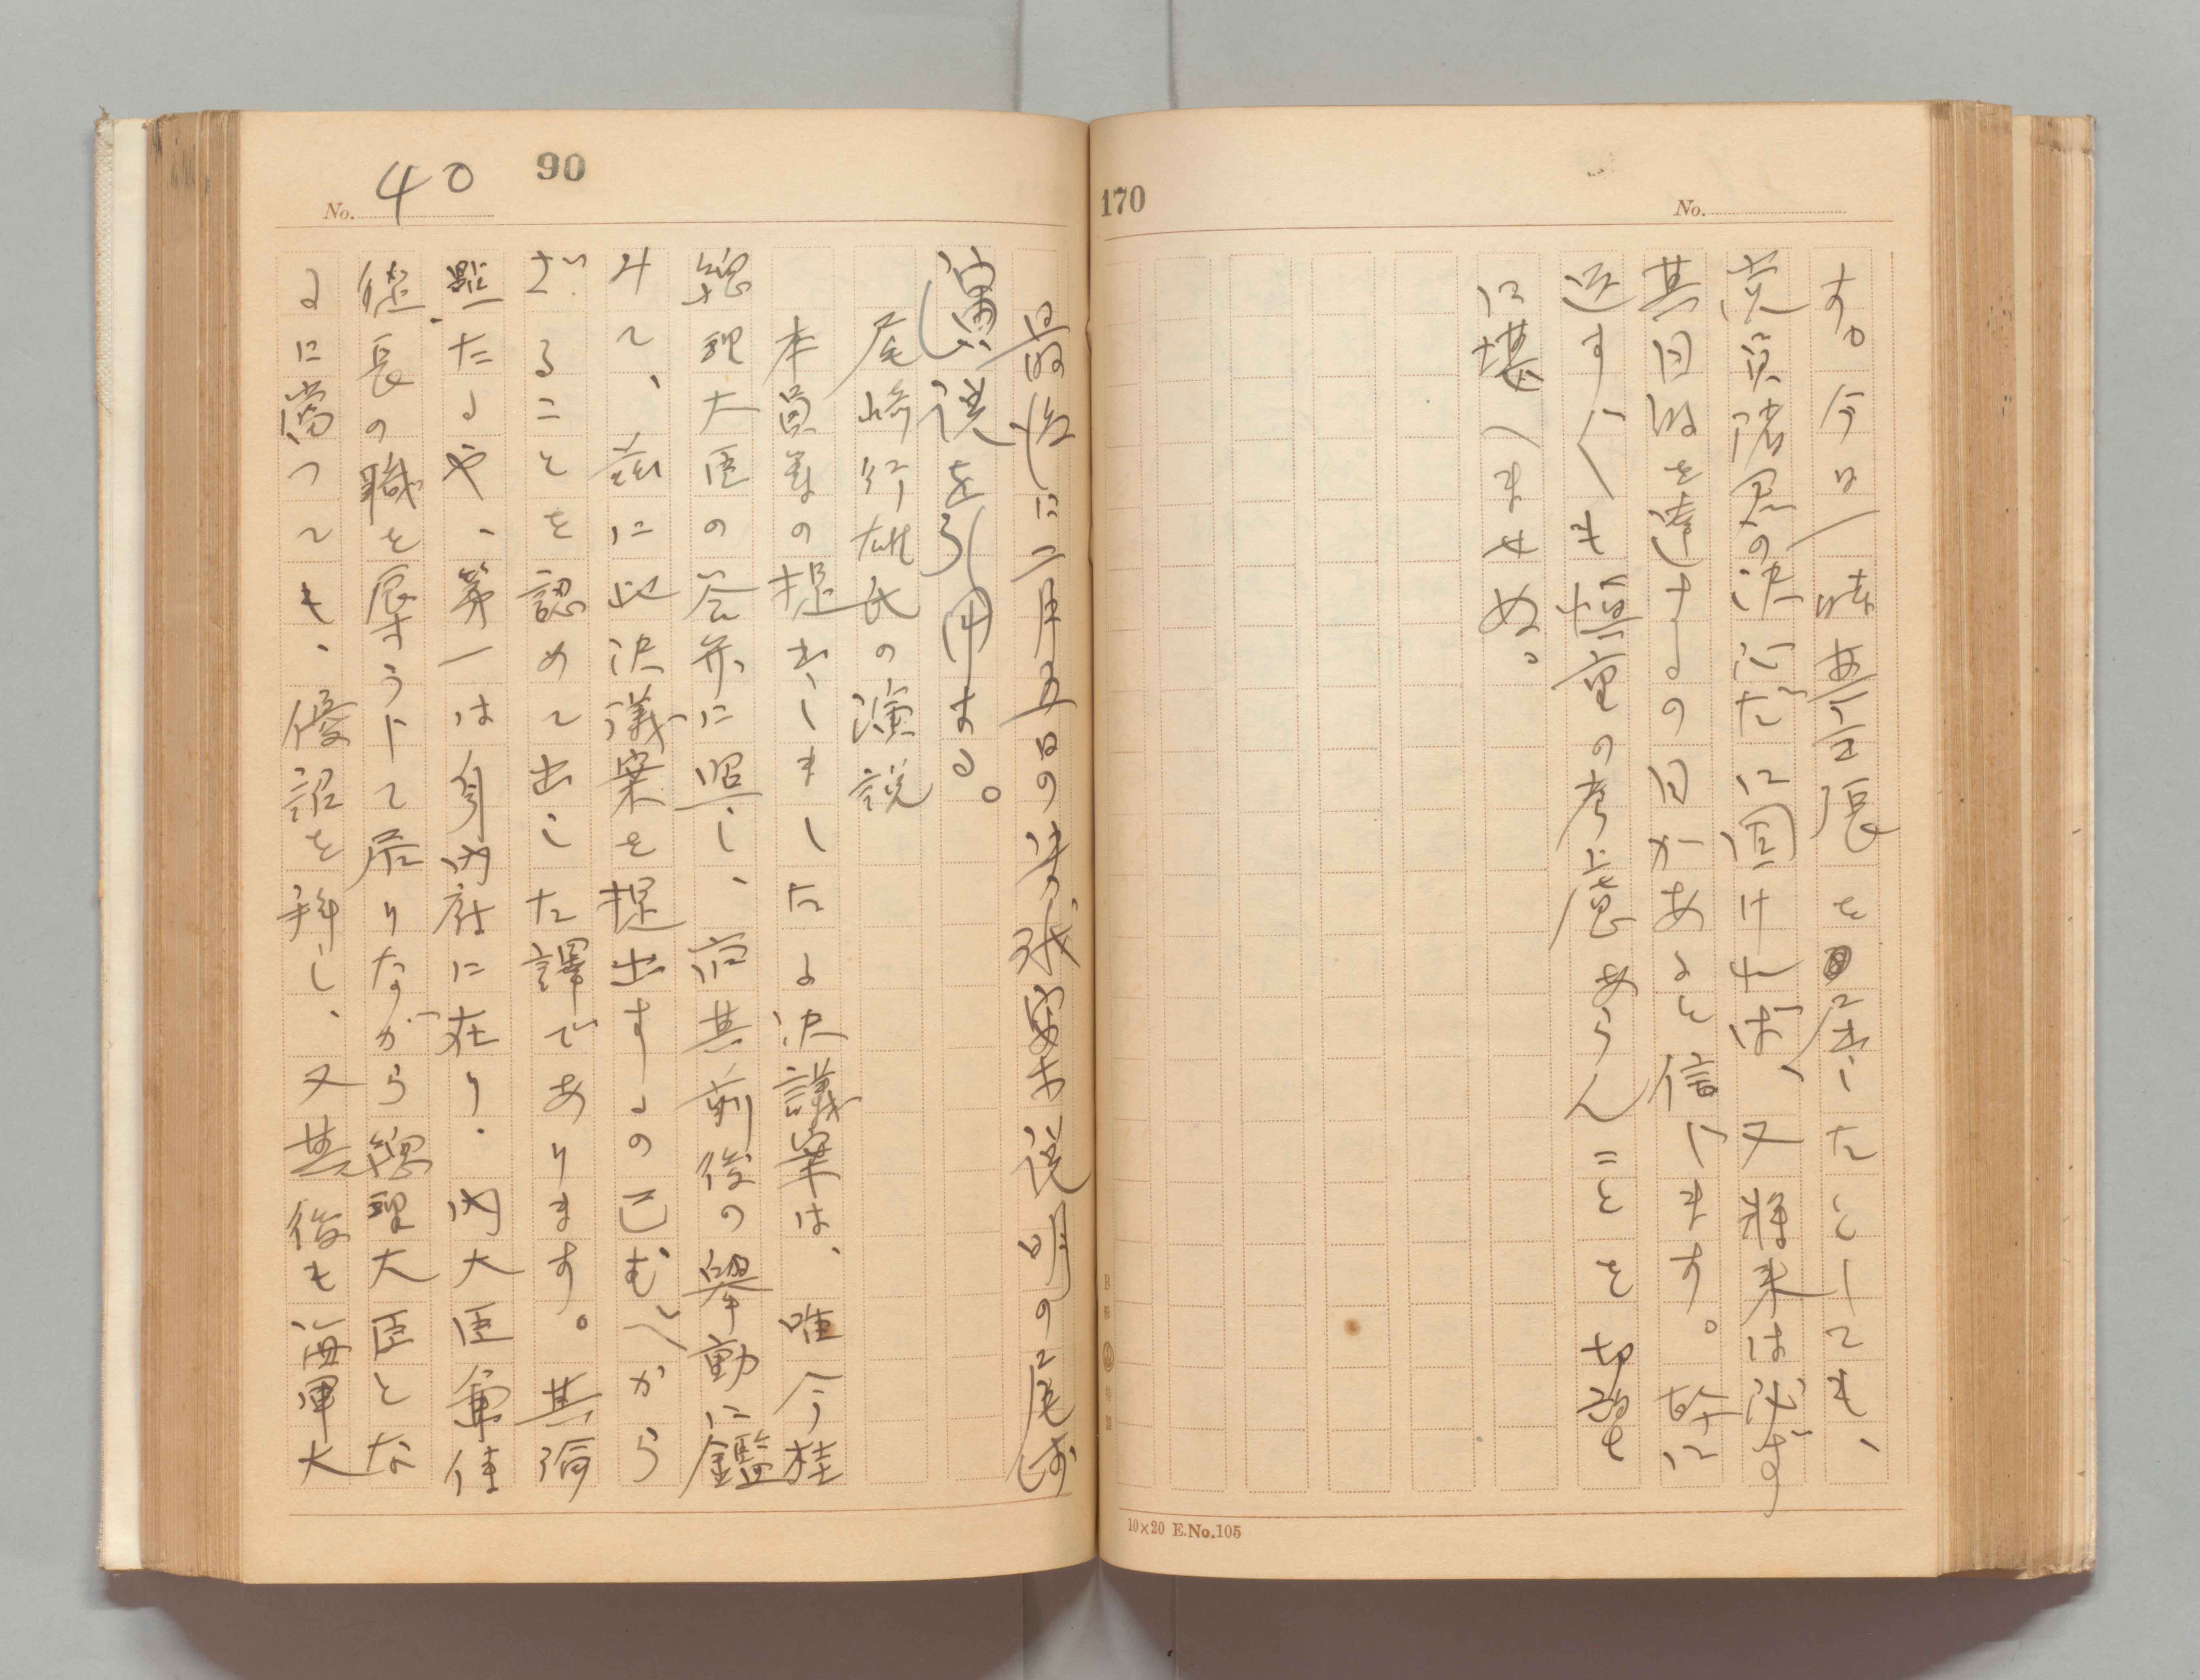 No.
170
す。今日一時無張をしたとしても、
党員諸君の決心だに固ければ、又将来は必ず
其目的を達するの日があると信じます。幹に
返す〱も慎重の考慮あらんことを切望
に堪へませぬ。
10×20 E.No.105
90
No. 40
最後に二月五日の案説明の尾崎
演説を引用する。
尾崎行雄氏の演説
本員等の提出しましたる決議案は、唯今桂
總理大臣の答弁に照し、而其前後の擧動に鑑
みて、茲に此決議案を提出するの已むべから
ざることを認めて出した譯であります。其論
點たるや、第一は身内府に在り、内大臣兼侍
從長の職を辱うして居りながら總理大臣とな
るに當つても、優詔を拜し、又其後も海軍大